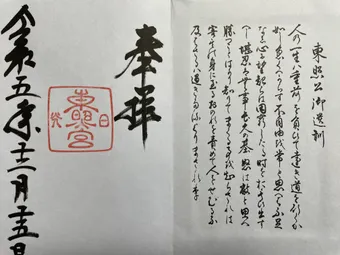 東照公御遺訓
人の一生は重荷を負て遠き道を行くか
如し急くへからす不自由を常と思へは不足
なし心に望起らは困窮したる時を思ひ出す
へし堪忍は無事長久の基怒は敵と思へ
勝つことはかり知りてまくる事を知らされは
害其身に至るおのれを責めて人をせむるな
及はさるは過きたるよりまされり
奉拝
日光
東照宮
令和五年十二月十五日